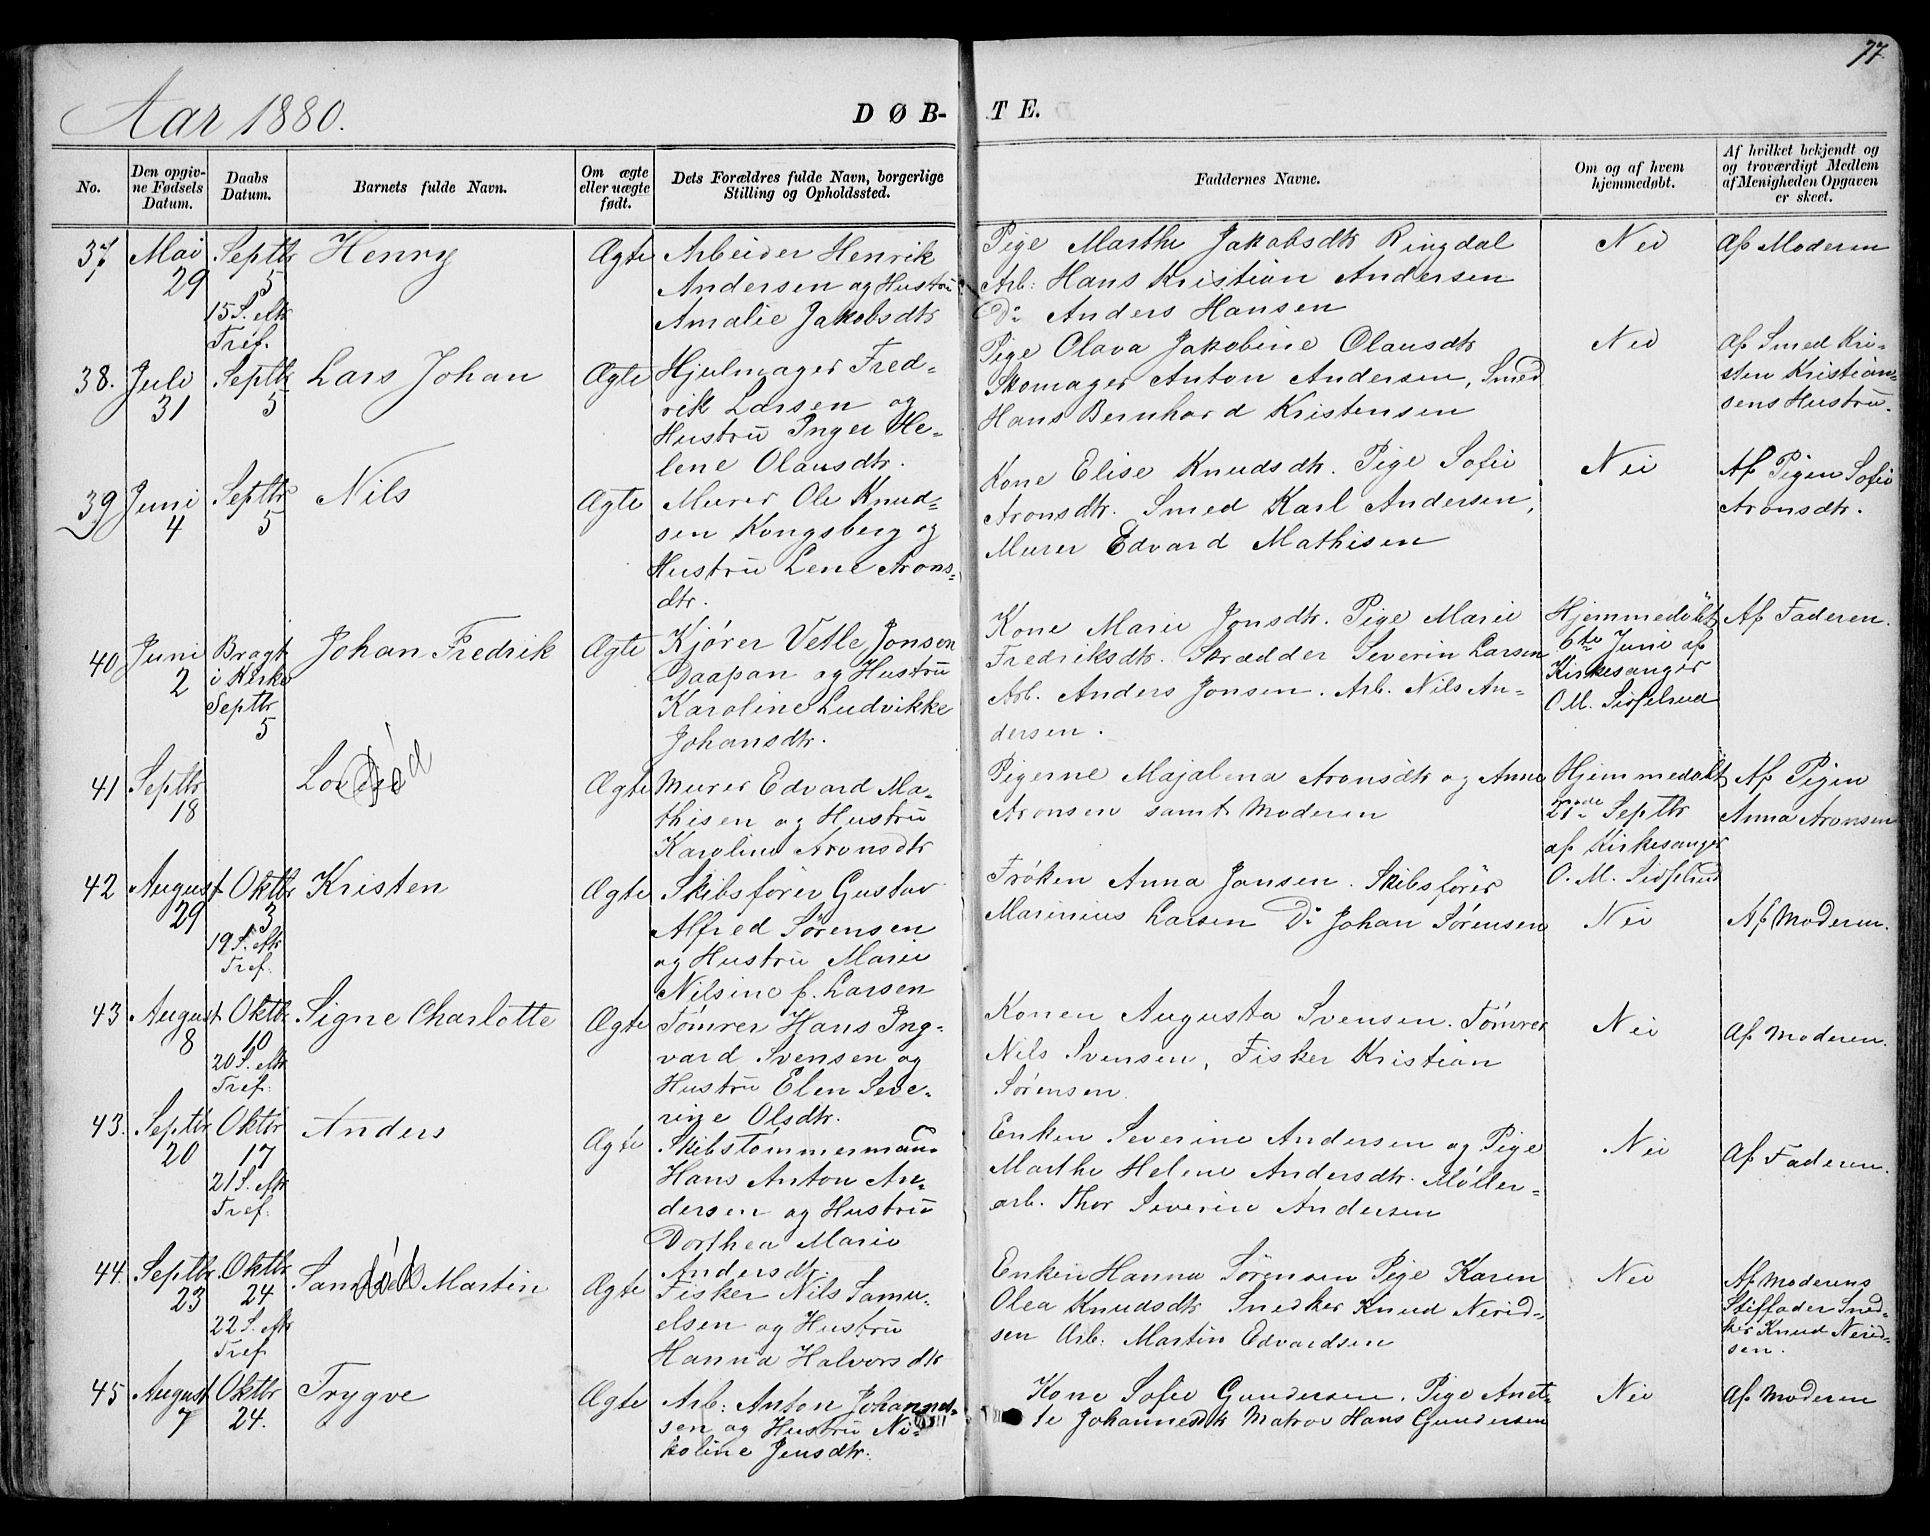 77
Aar 1880.
DØB- TE.
No.
Den opgiv-
ne Fødsels
Datum.
Daabs
Datum.
Barnets fulde Navn.
Om ægte
eller uægte
født.
Dets Forældres fulde Navn, borgerlige
Stilling og Opholdssted.
Faddernes Navne.
Om og af hvem
hjemmedøbt.
Af hvilket bekjendt og
og troværdigt Medlem
af Menigheden Opgaven
er skeet.
37
Mai
29
Septbr
5
15 S. eftr
Tref.
Henry
Ægte
Arbeider Henrik
Andersen og Hustru
Amalie Jakobsdtr
Pige Marthe Jakobsdtr Ringdal
Arb: Hans Kristian Andersen
Do Anders Hansen
Nei
af Moderen
38.
Juli
31
Septbr
5
Lars Johan
Ægte
Hjulmager Fred-
rik Larsen og
Hustru Inger He-
lene Olausdtr.
Pige Olava Jakobine Olausdtr
Skomager Anton Andersen, Smed
Hans Bernhard Kristensen
Nei
af Smed Kri-
sten Kristian-
sens Hustru.
39
Juni
4
Septbr
5
Nils
Ægte
Murer Ole Knud-
sen Kongsberg og
Hustru Lene Arons-
dtr.
Kone Elise Knudsdtr. Pige Sofie
Aronsdtr. Smed Karl Andersen,
Murer Edvard Mathisen
Nei
Af Pigen Sofie
Aronsdtr.
40
Juni
2
Bragt
i Kirke
Septbr
5
Johan Fredrik
Ægte
Kjører Vetle Jonsen
Daapan og Hustru
Karoline Ludvikke
Johansdtr.
Kone Marie Jonsdtr. Pige Marie
Fredriksdtr. Skrædder Severin Larsen
Arb. Anders Jonsen. Arb. Nils An-
dersen.
Hjemmedøbt
6te Juni af
Kirkesanger
O M. Sisselrud
Af Faderen.
41
Septbr
18
død
Ægte
Murer Edvard Ma-
thisen og Hustru
Karoline Aronsdtr
Pigerne Majalena Aronsdtr og Anne
Aronsen samt Moderen
Hjemmedøbt
27nde Septbr
af Kirkesanger
O. M. Sisselrud
Af Pigen
Anna Aronsen
42
August
29
Oktbr
3
19 S. eftr
Tref.
Kristen
Ægte
Skibsfører Gustav
Alfred Sørensen
og Hustru Marie
Nilsine f. Larsen
Frøken Anna Jansen. Skibsfører
Marinius Larsen Do Johan Sørensen
Nei
Af Moderen.
43
August
8
Oktbr.
10
20 S. eftr
Tref.
Signe Charlotte
Ægte
Tømrer Hans Ing-
vard Svensen og
Hustru Elen Seve-
rine Olsdtr.
Konen Augusta Svensen. Tømrer
Nils Svensen, Fisker Kristian
Sørensen.
Nei
Af Moderen.
43.
Septbr
20
Oktbr
17
21 S. eftr
Tref.
Anders
Ægte
Skibstømmermand
Hans Anton An-
dersen og Hustru
Dorthea Marie
Andersdtr.
Enken Severine Andersen og Pige
Marthe Helene Andersdtr. Møller-
arb. Thor Severin Andersen
Nei
Af Faderen.
44.
Septbr
23
Oktbr
24
22 S. eftr
Tref
Samuel Martin
død
Ægte
Fisker Nils Samu-
elsen og Hustru
Hanna Halvorsdtr
Enken Hanna Sørensen Pige Karen
Olea Knudsdtr Snedker Knud Nerid-
sen Arb: Martin Edvardsen
Nei
Af Moderens
Stiffader Sned-
ker Knud Nerid-
sen.
45
August
7
Oktbr
24.
Trygve
Ægte
Arb: Anton Johannes-
sen og Hustru Ni-
koline Jensdtr.
Kone Sofie Gundersen. Pige Anet-
te Johannesdtr Matros Hans Gundersen
Nei
Af Moderen